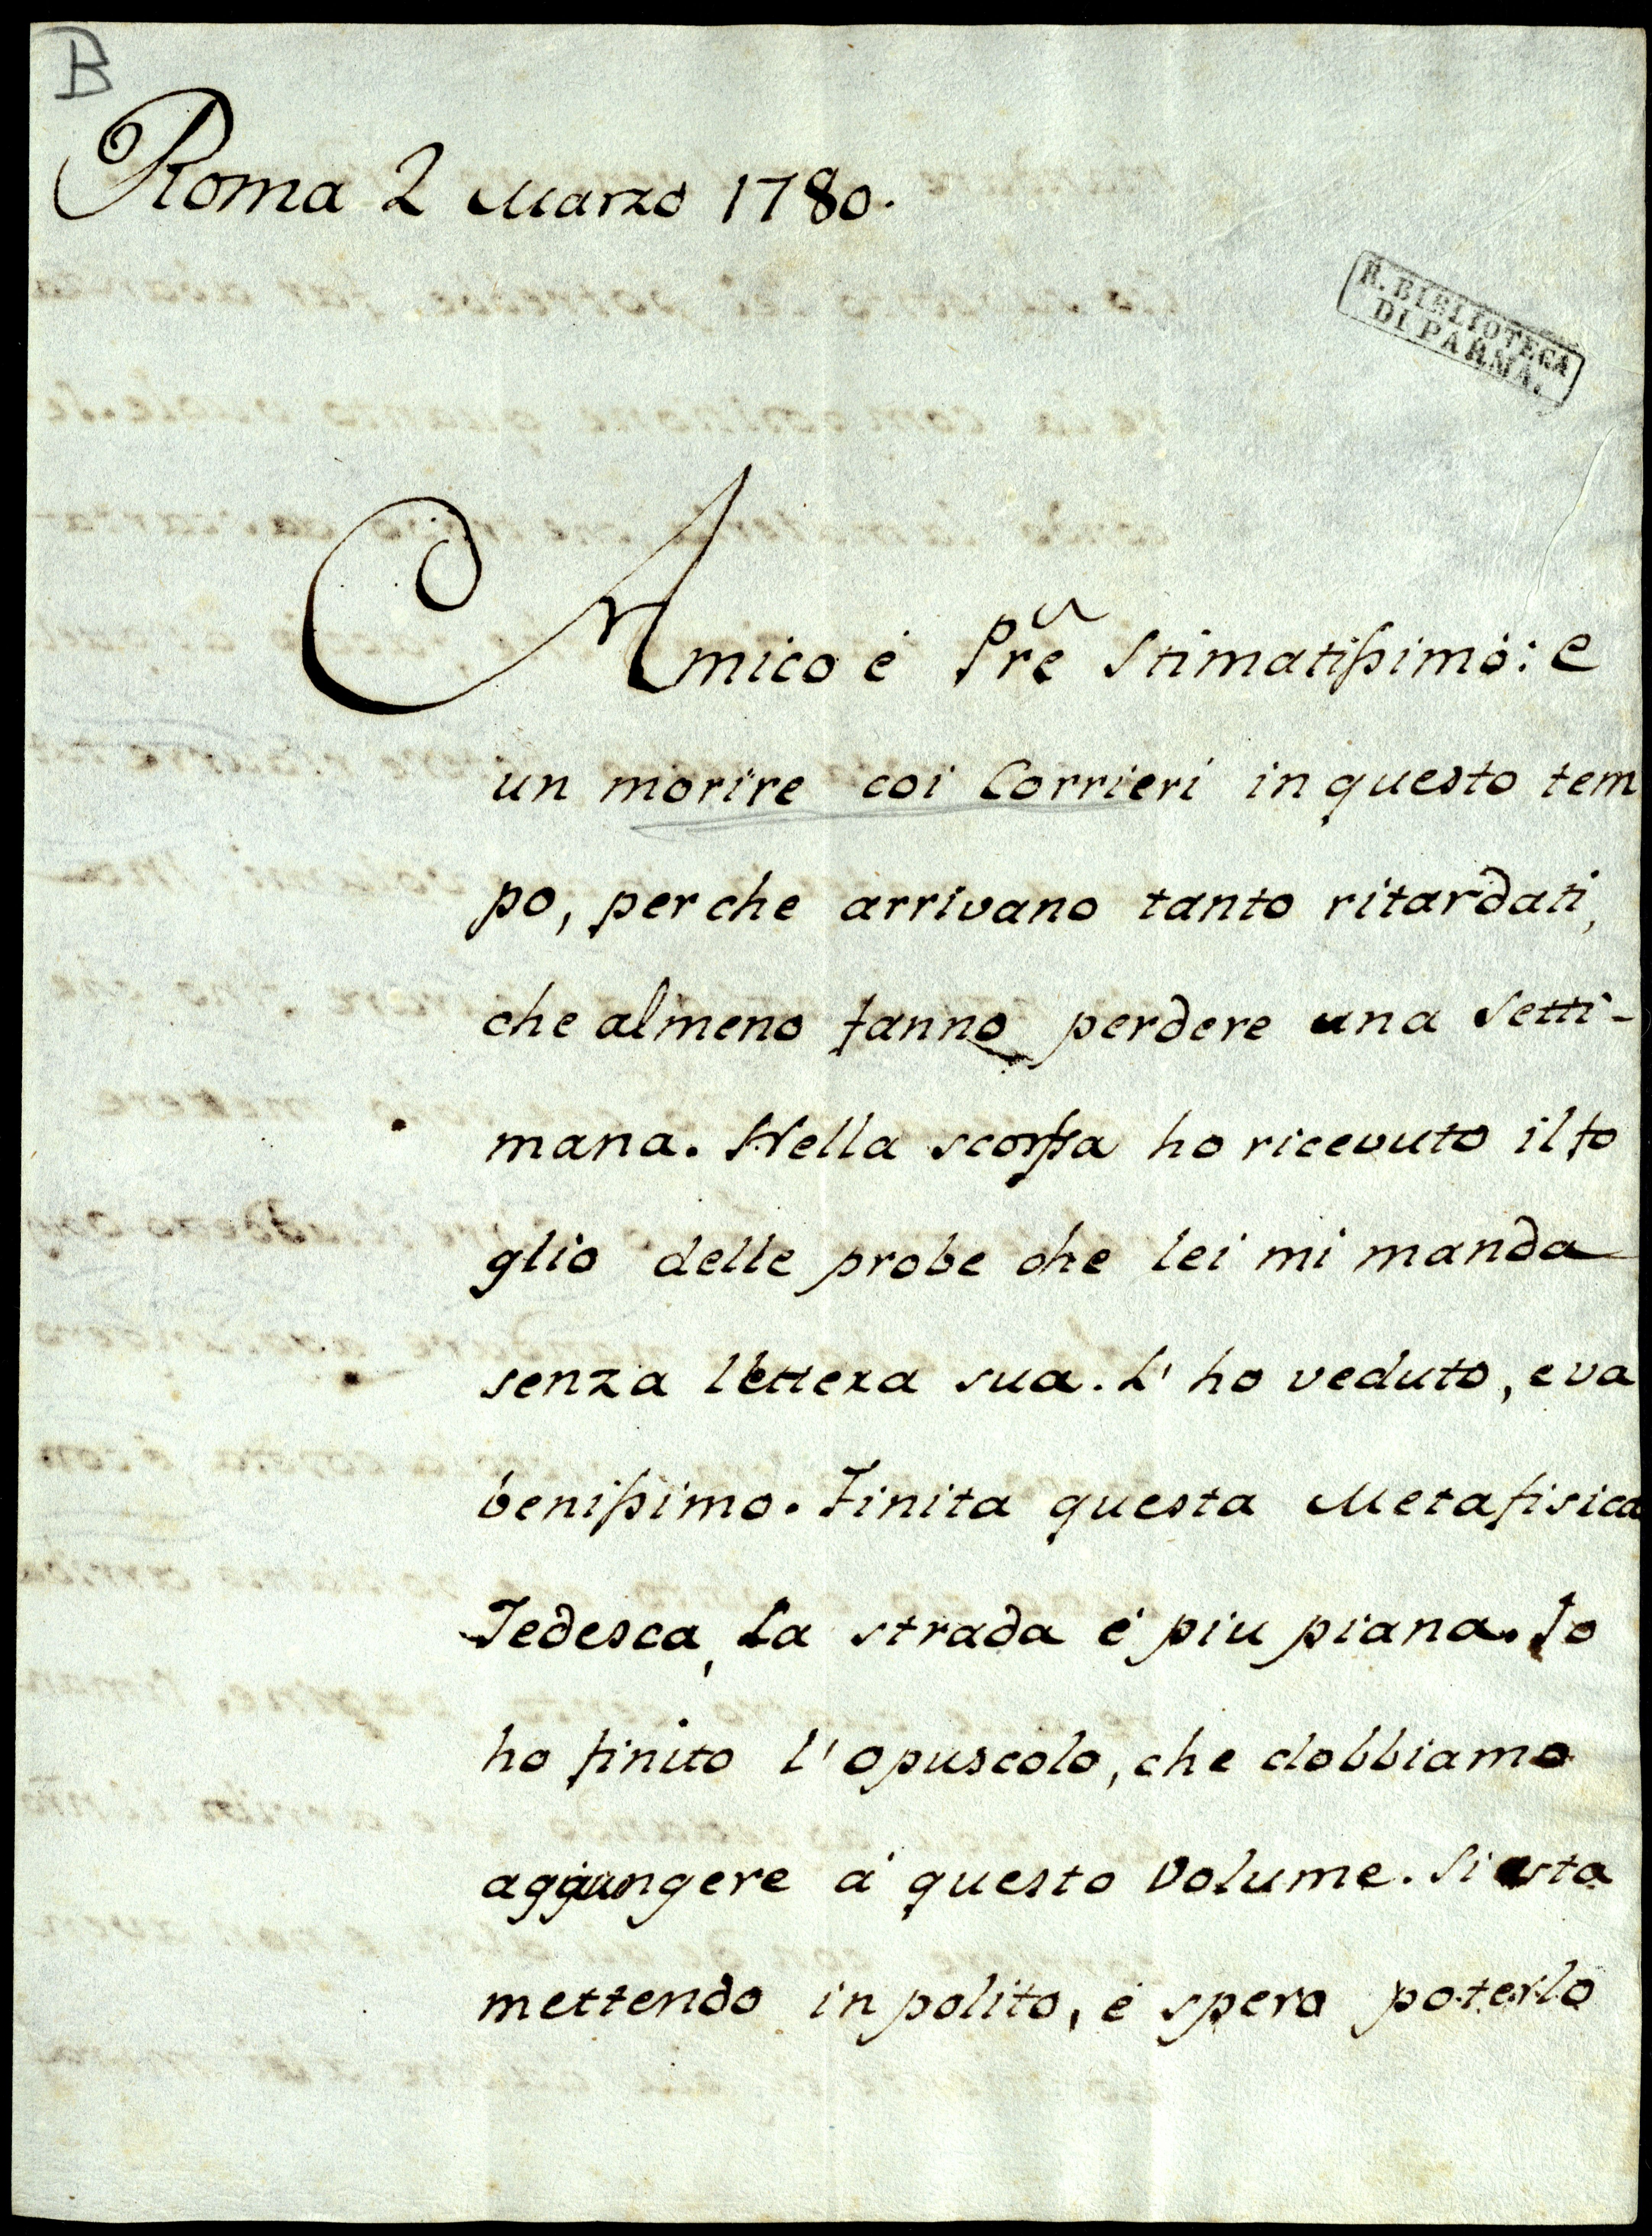 B
Roma 2 Marzo 1780.
R. BIBLIOTECA
DI PARMA.
Amico é Pre Stimatissimo: e
un morire coi Corrieri in questo tem
po, perche arrivano tanto ritardati,
che almeno fanno perdere una Setti-
mana. Nella scorsa ho ricevuto il fo
glio delle probe che lei mi manda
senza lettera sua. L' ho veduto, e va
benissimo. Finita questa Metafisica
Tedesca, La strada é piu piana. Io
ho finito l' opuscolo, che dobbiamo
aggiungere á questo Volume. Si sta
mettendo in polito, é spero poterlo